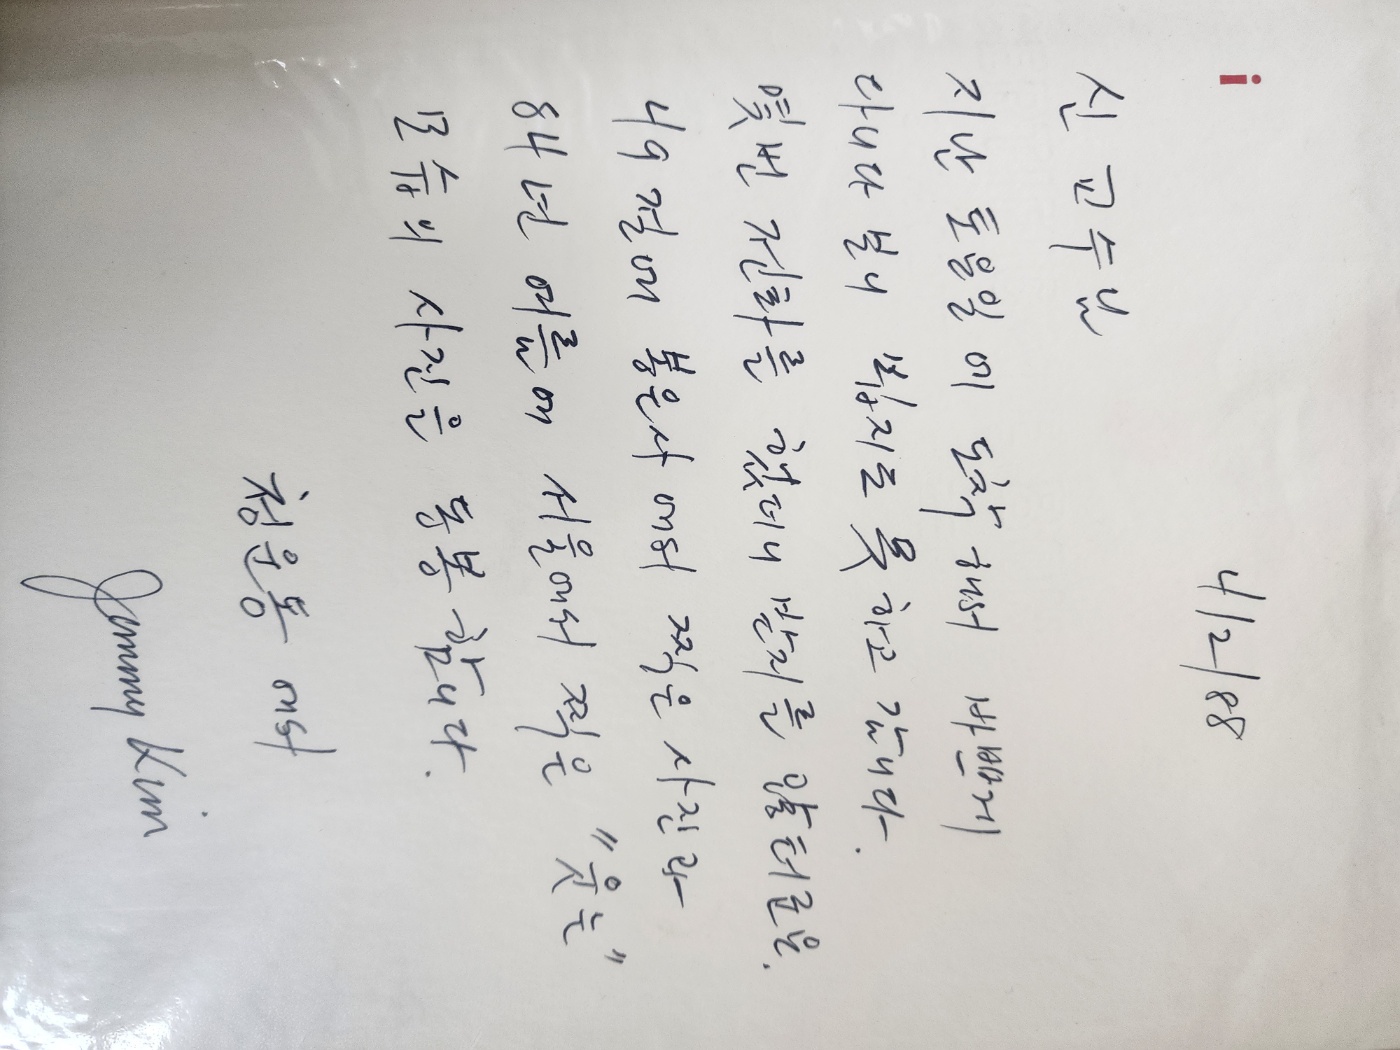 i
4/2/88
신 교수님
지난 토요일에 도착해서 바쁘게
다니다 보니 뵙지를 못하고 갑니다.
몇번 전화를 했더니 받지를 않터군요.
4/9 절에 봉은사에서 찍은 사진과
84년 여름에 서울에서 찍은 "웃는"
모습의 사진을 동봉합니다.
청운동에서
Jemmy Kim